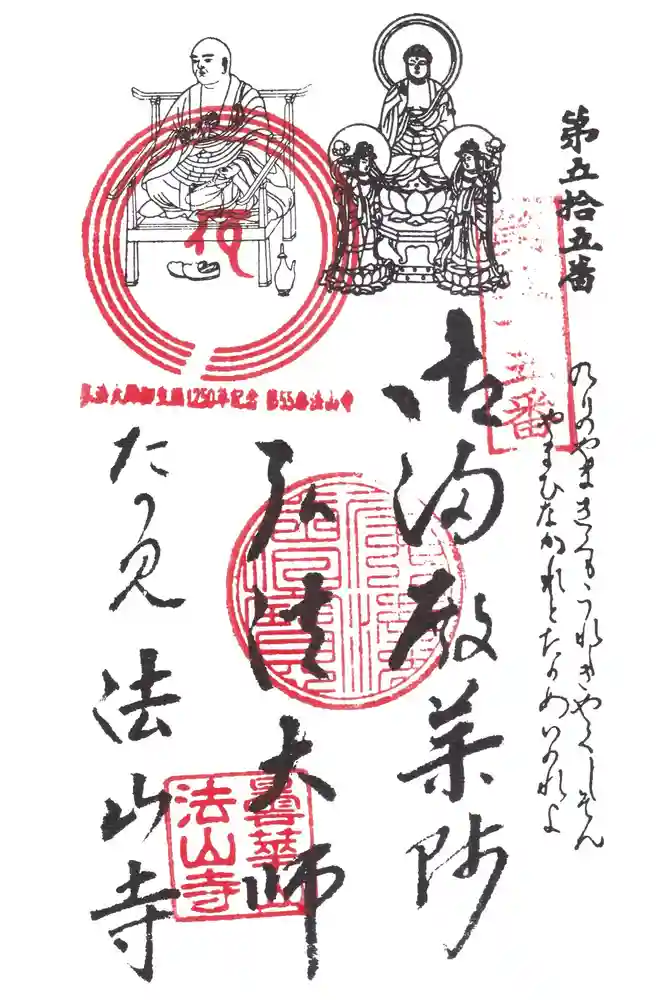 第五拾五番
のりのやまきくもうれしきやくしそん
やまひなかれとたのめいのれよ
番
御湯殿薬師
弘法大師
たの見 法山寺
弘法大師御生誕1250年記念 第55番法山寺
曇華山
法山寺